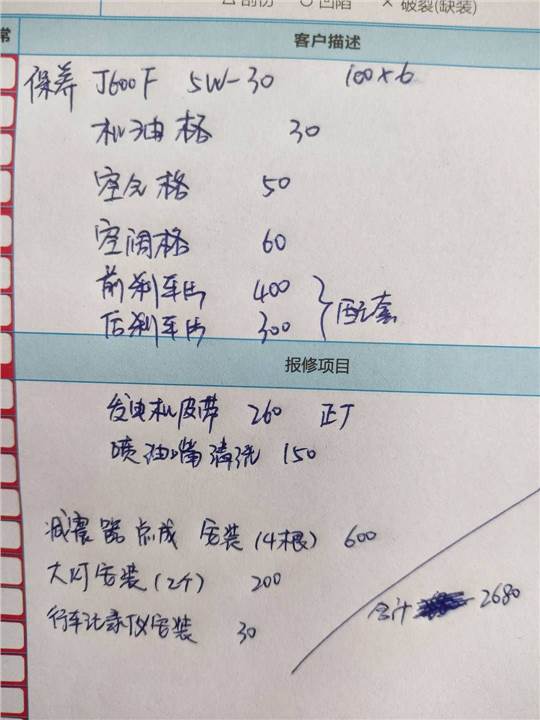 △ 刮伤 ○ 凹陷 × 破裂(缺装)
常 客户描述
保养 J600F 5W-30 100×6
机油格 30
空气格 50
空调格 60
前刹车片 400
后刹车片 300 } 配套
报修项目
发电机皮带 260 正厂
喷油嘴清洗 150
减震器总成 安装(4根) 600
大灯安装(2个) 200
行车记录仪安装 30
合计 2680